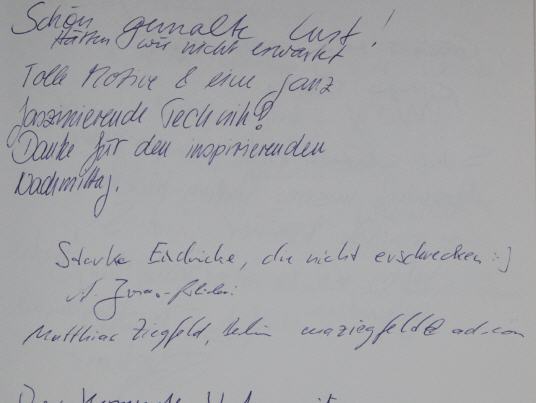 Schön gemalte Lust!
Hätten wir nicht erwartet
Tolle Motive & eine ganz
faszinierende Technik!
Danke für den inspirierenden
Nachmittag.
Starke Eindrücke, die nicht erschrecken :)
Matthias Ziegfeld, Berlin maziegfeld@ad.com